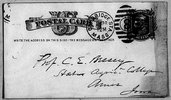 POSTAL CARD
WRITE THE ADDRESS ON THIS SIDE - THE MESSAGE ON THE OTHER
Prof. C. E. Bessey
State Agric. College
Ames
Iowa